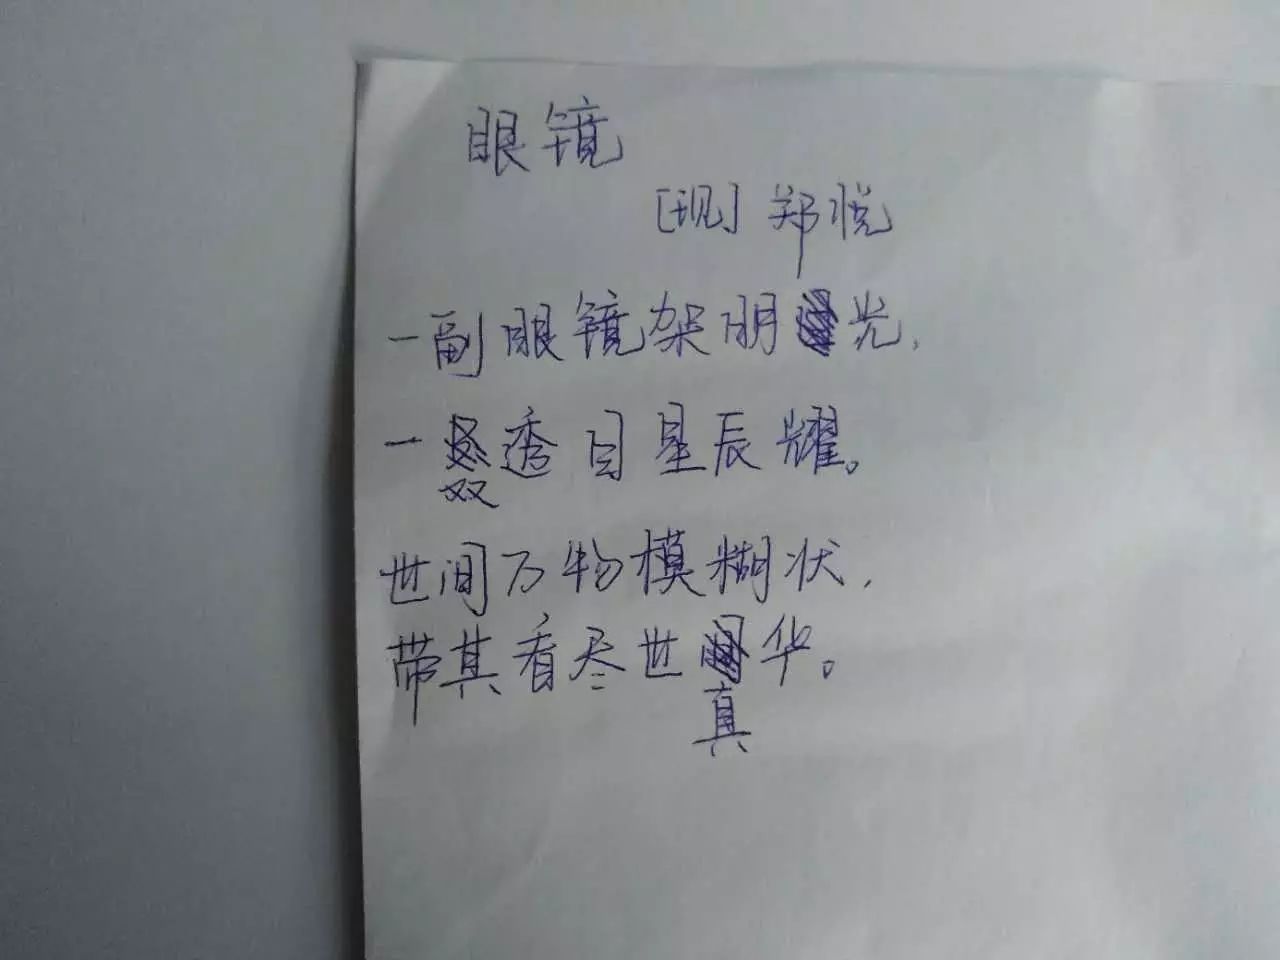 眼镜
[现] 郑悦
一副眼镜架明光,
一双透目星辰耀。
世间万物模糊状,
带其看尽世真华。